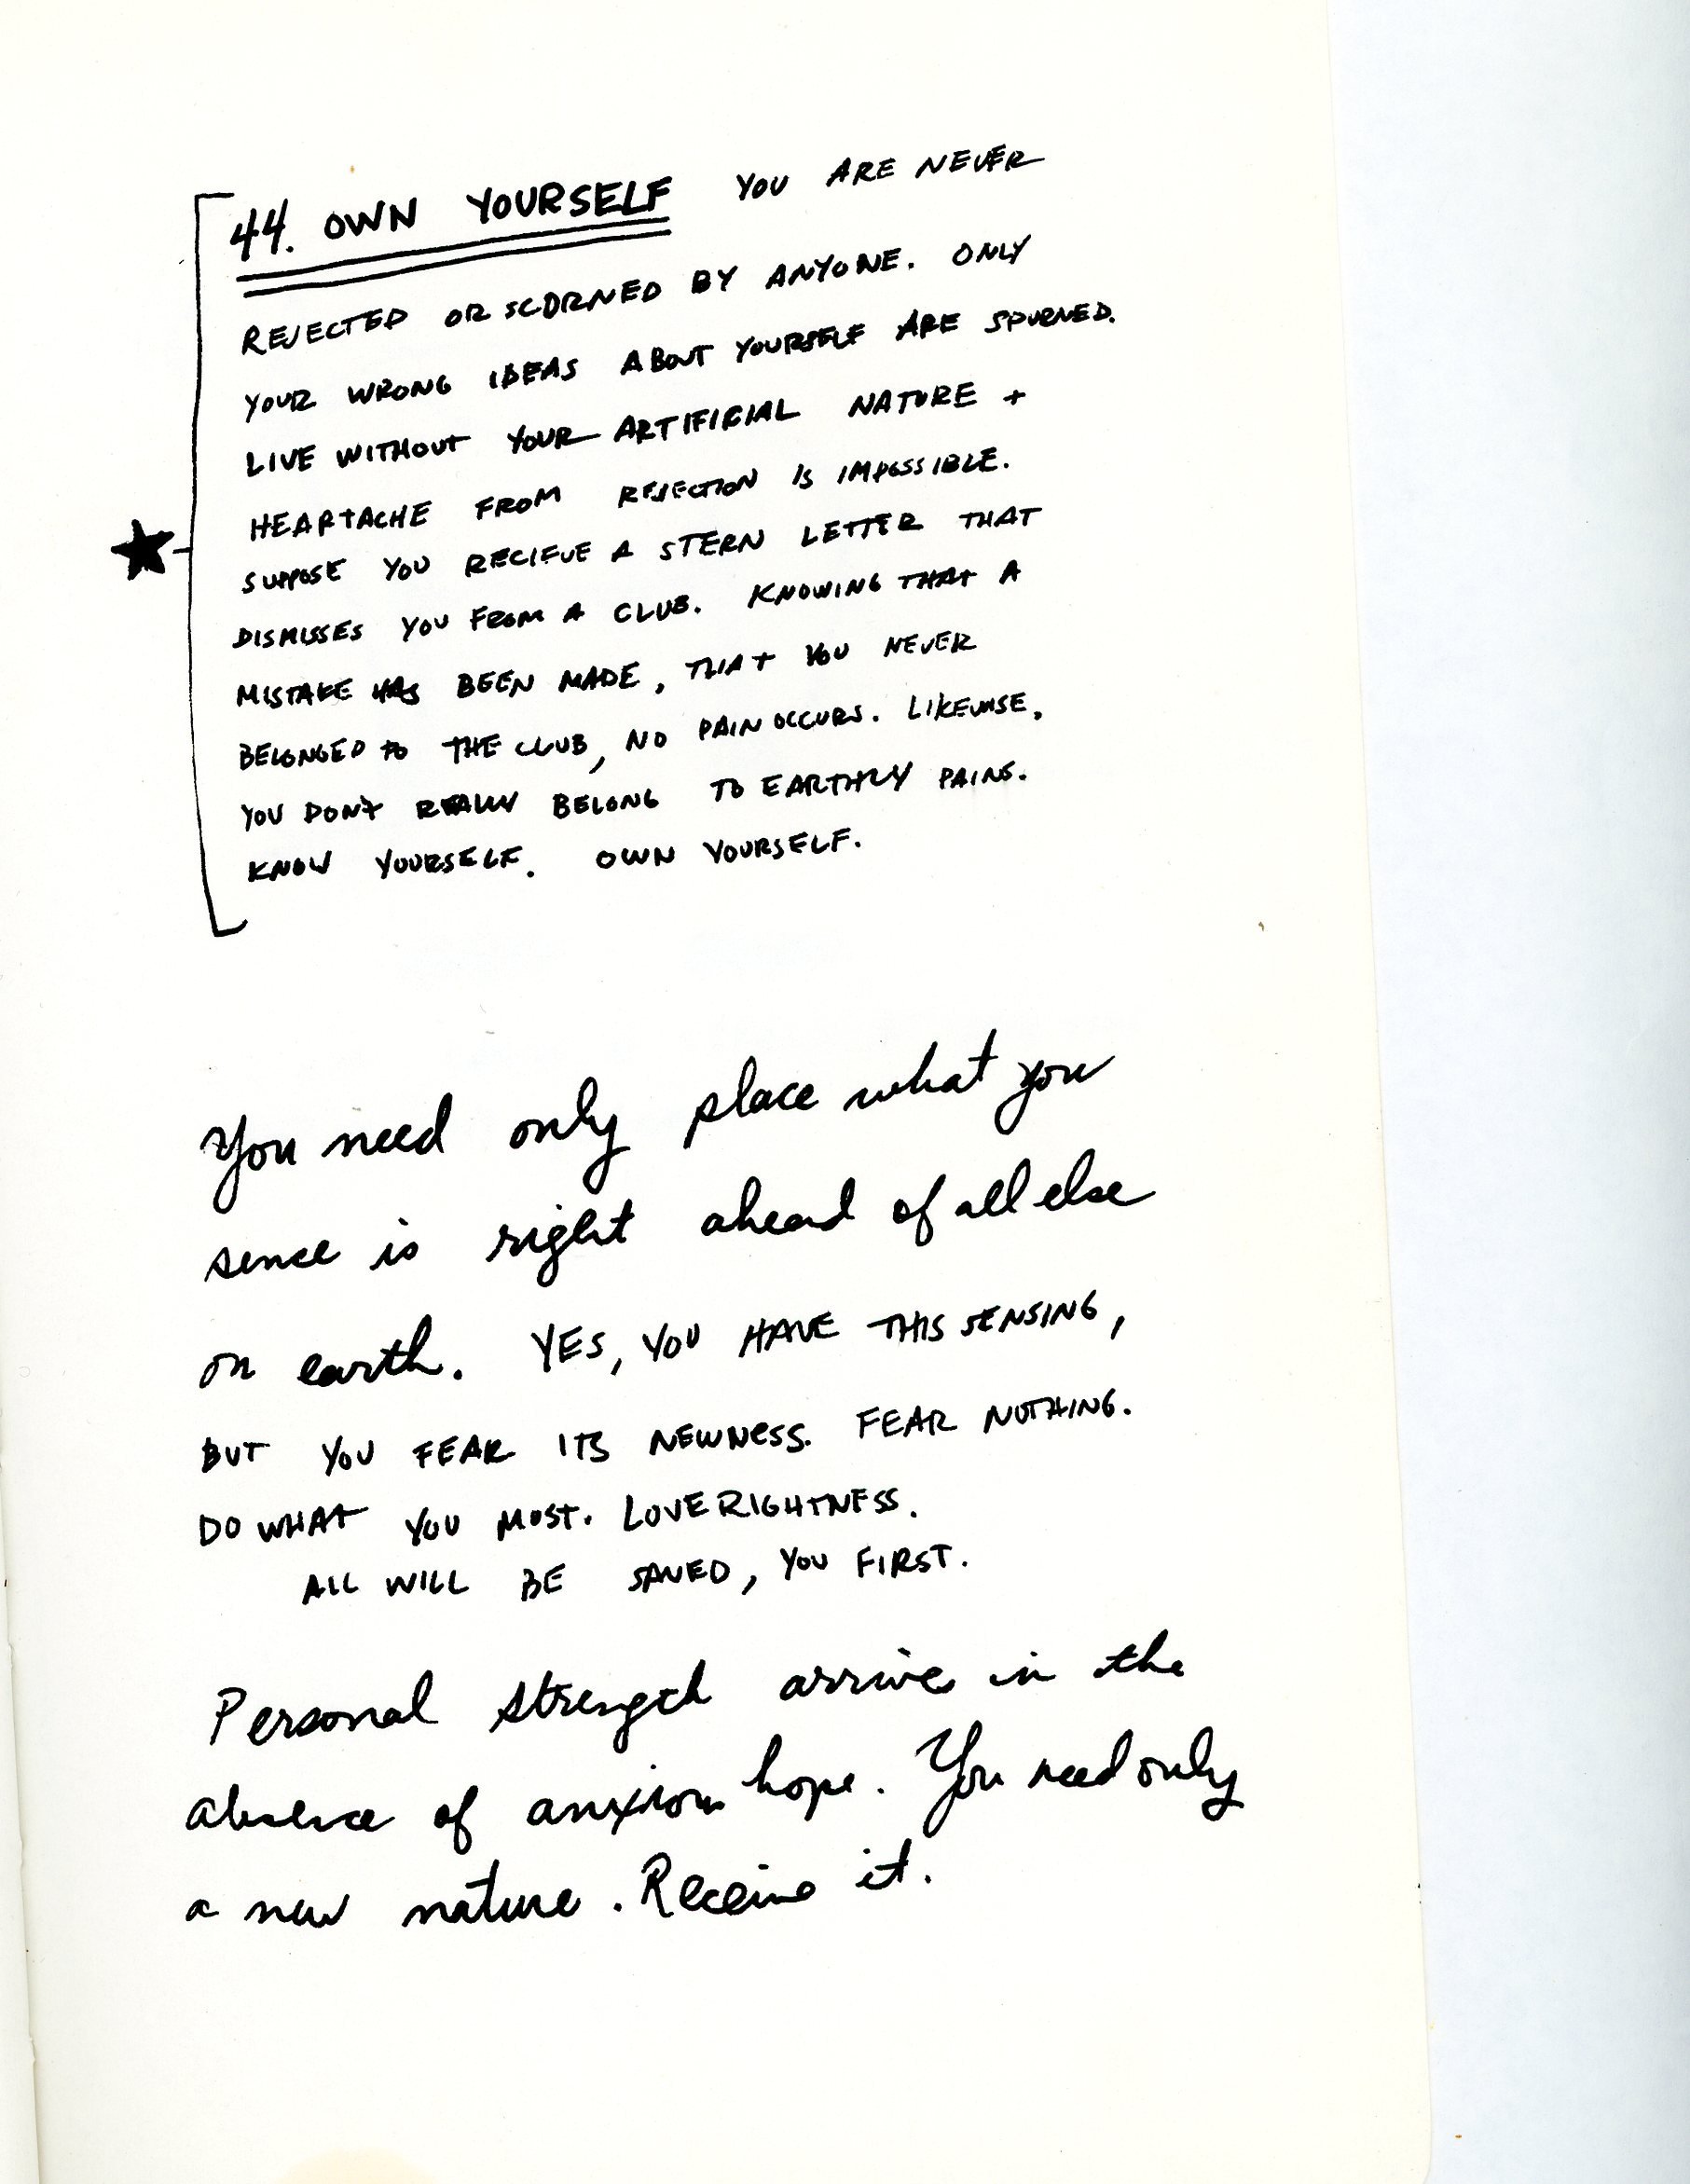 44. OWN YOURSELF YOU ARE NEVER
REJECTED OR SCORNED BY ANYONE. ONLY
YOUR WRONG IDEAS ABOUT YOURSELF ARE SPURNED.
LIVE WITHOUT YOUR ARTIFICIAL NATURE +
HEARTACHE FROM REJECTION IS IMPOSSIBLE.
SUPPOSE YOU RECIEVE A STERN LETTER THAT
DISMISSES YOU FROM A CLUB. KNOWING THAT A
MISTAKE HAS BEEN MADE, THAT YOU NEVER
BELONGED TO THE CLUB, NO PAIN OCCURS. LIKEWISE,
YOU DON'T REALLY BELONG TO EARTHLY PAINS.
KNOW YOURSELF. OWN YOURSELF.
You need only place what you
sence is right ahead of all else
on earth. YES, YOU HAVE THIS SENSING,
BUT YOU FEAR ITS NEWNESS. FEAR NOTHING.
DO WHAT YOU MOST. LOVE RIGHTNESS.
ALL WILL BE SAVED, YOU FIRST.
Personal strength arrives in the
absence of anxious hope. You need only
a new nature. Receive it.